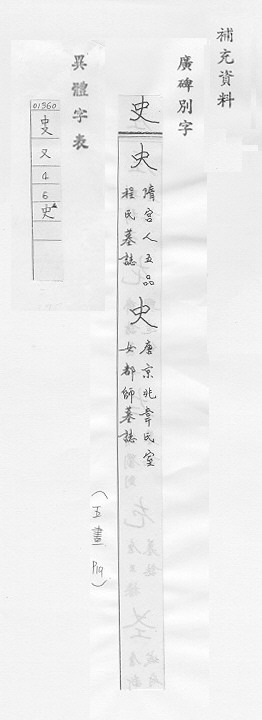 補充資料
廣碑別字
史
史
隋宮人五品
程氏墓誌
史
唐京兆韋氏室
女都師墓誌
(五畫 P19)
異體字表
01360
史
又
4
6
史